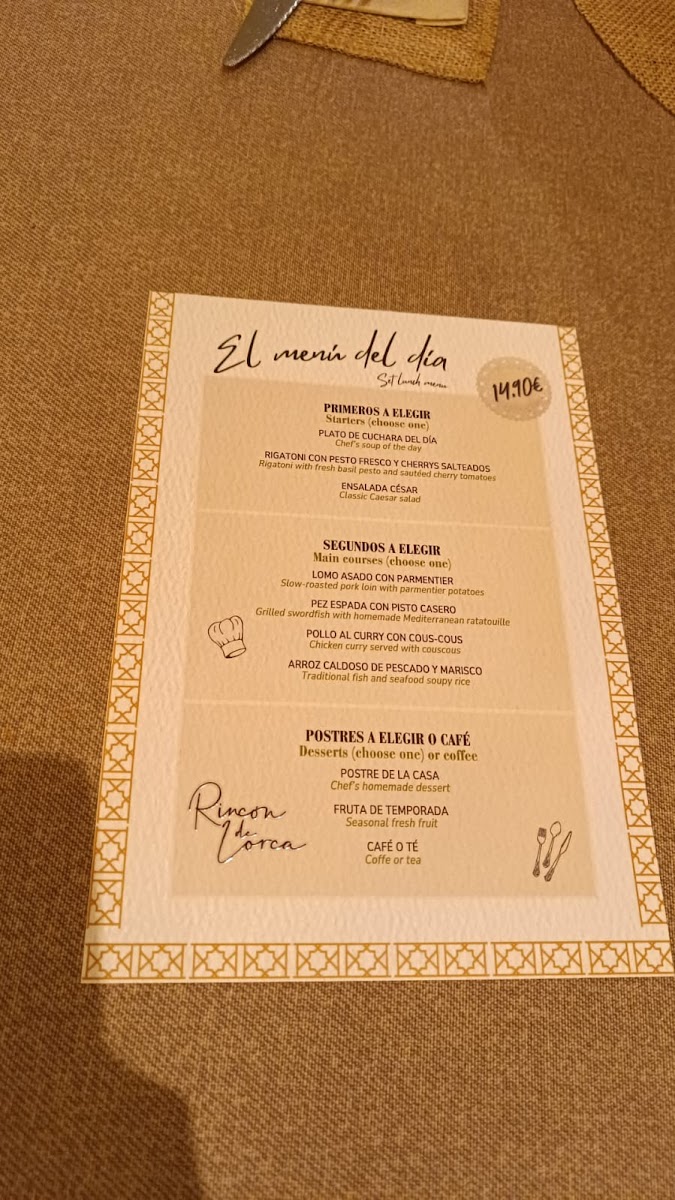 El menú del día
Set lunch menu
14.90€
PRIMEROS A ELEGIR
Starters (choose one)
PLATO DE CUCHARA DEL DÍA
Chef's soup of the day
RIGATONI CON PESTO FRESCO Y CHERRYS SALTEADOS
Rigatoni with fresh basil pesto and sautéed cherry tomatoes
ENSALADA CÉSAR
Classic Caesar salad
SEGUNDOS A ELEGIR
Main courses (choose one)
LOMO ASADO CON PARMENTIER
Slow-roasted pork loin with parmentier potatoes
PEZ ESPADA CON PISTO CASERO
Grilled swordfish with homemade Mediterranean ratatouille
POLLO AL CURRY CON COUS-COUS
Chicken curry served with couscous
ARROZ CALDOSO DE PESCADO Y MARISCO
Traditional fish and seafood soupy rice
POSTRES A ELEGIR O CAFÉ
Desserts (choose one) or coffee
POSTRE DE LA CASA
Chef's homemade dessert
FRUTA DE TEMPORADA
Seasonal fresh fruit
CAFÉ O TÉ
Coffe or tea
Rincon
de
Lorca